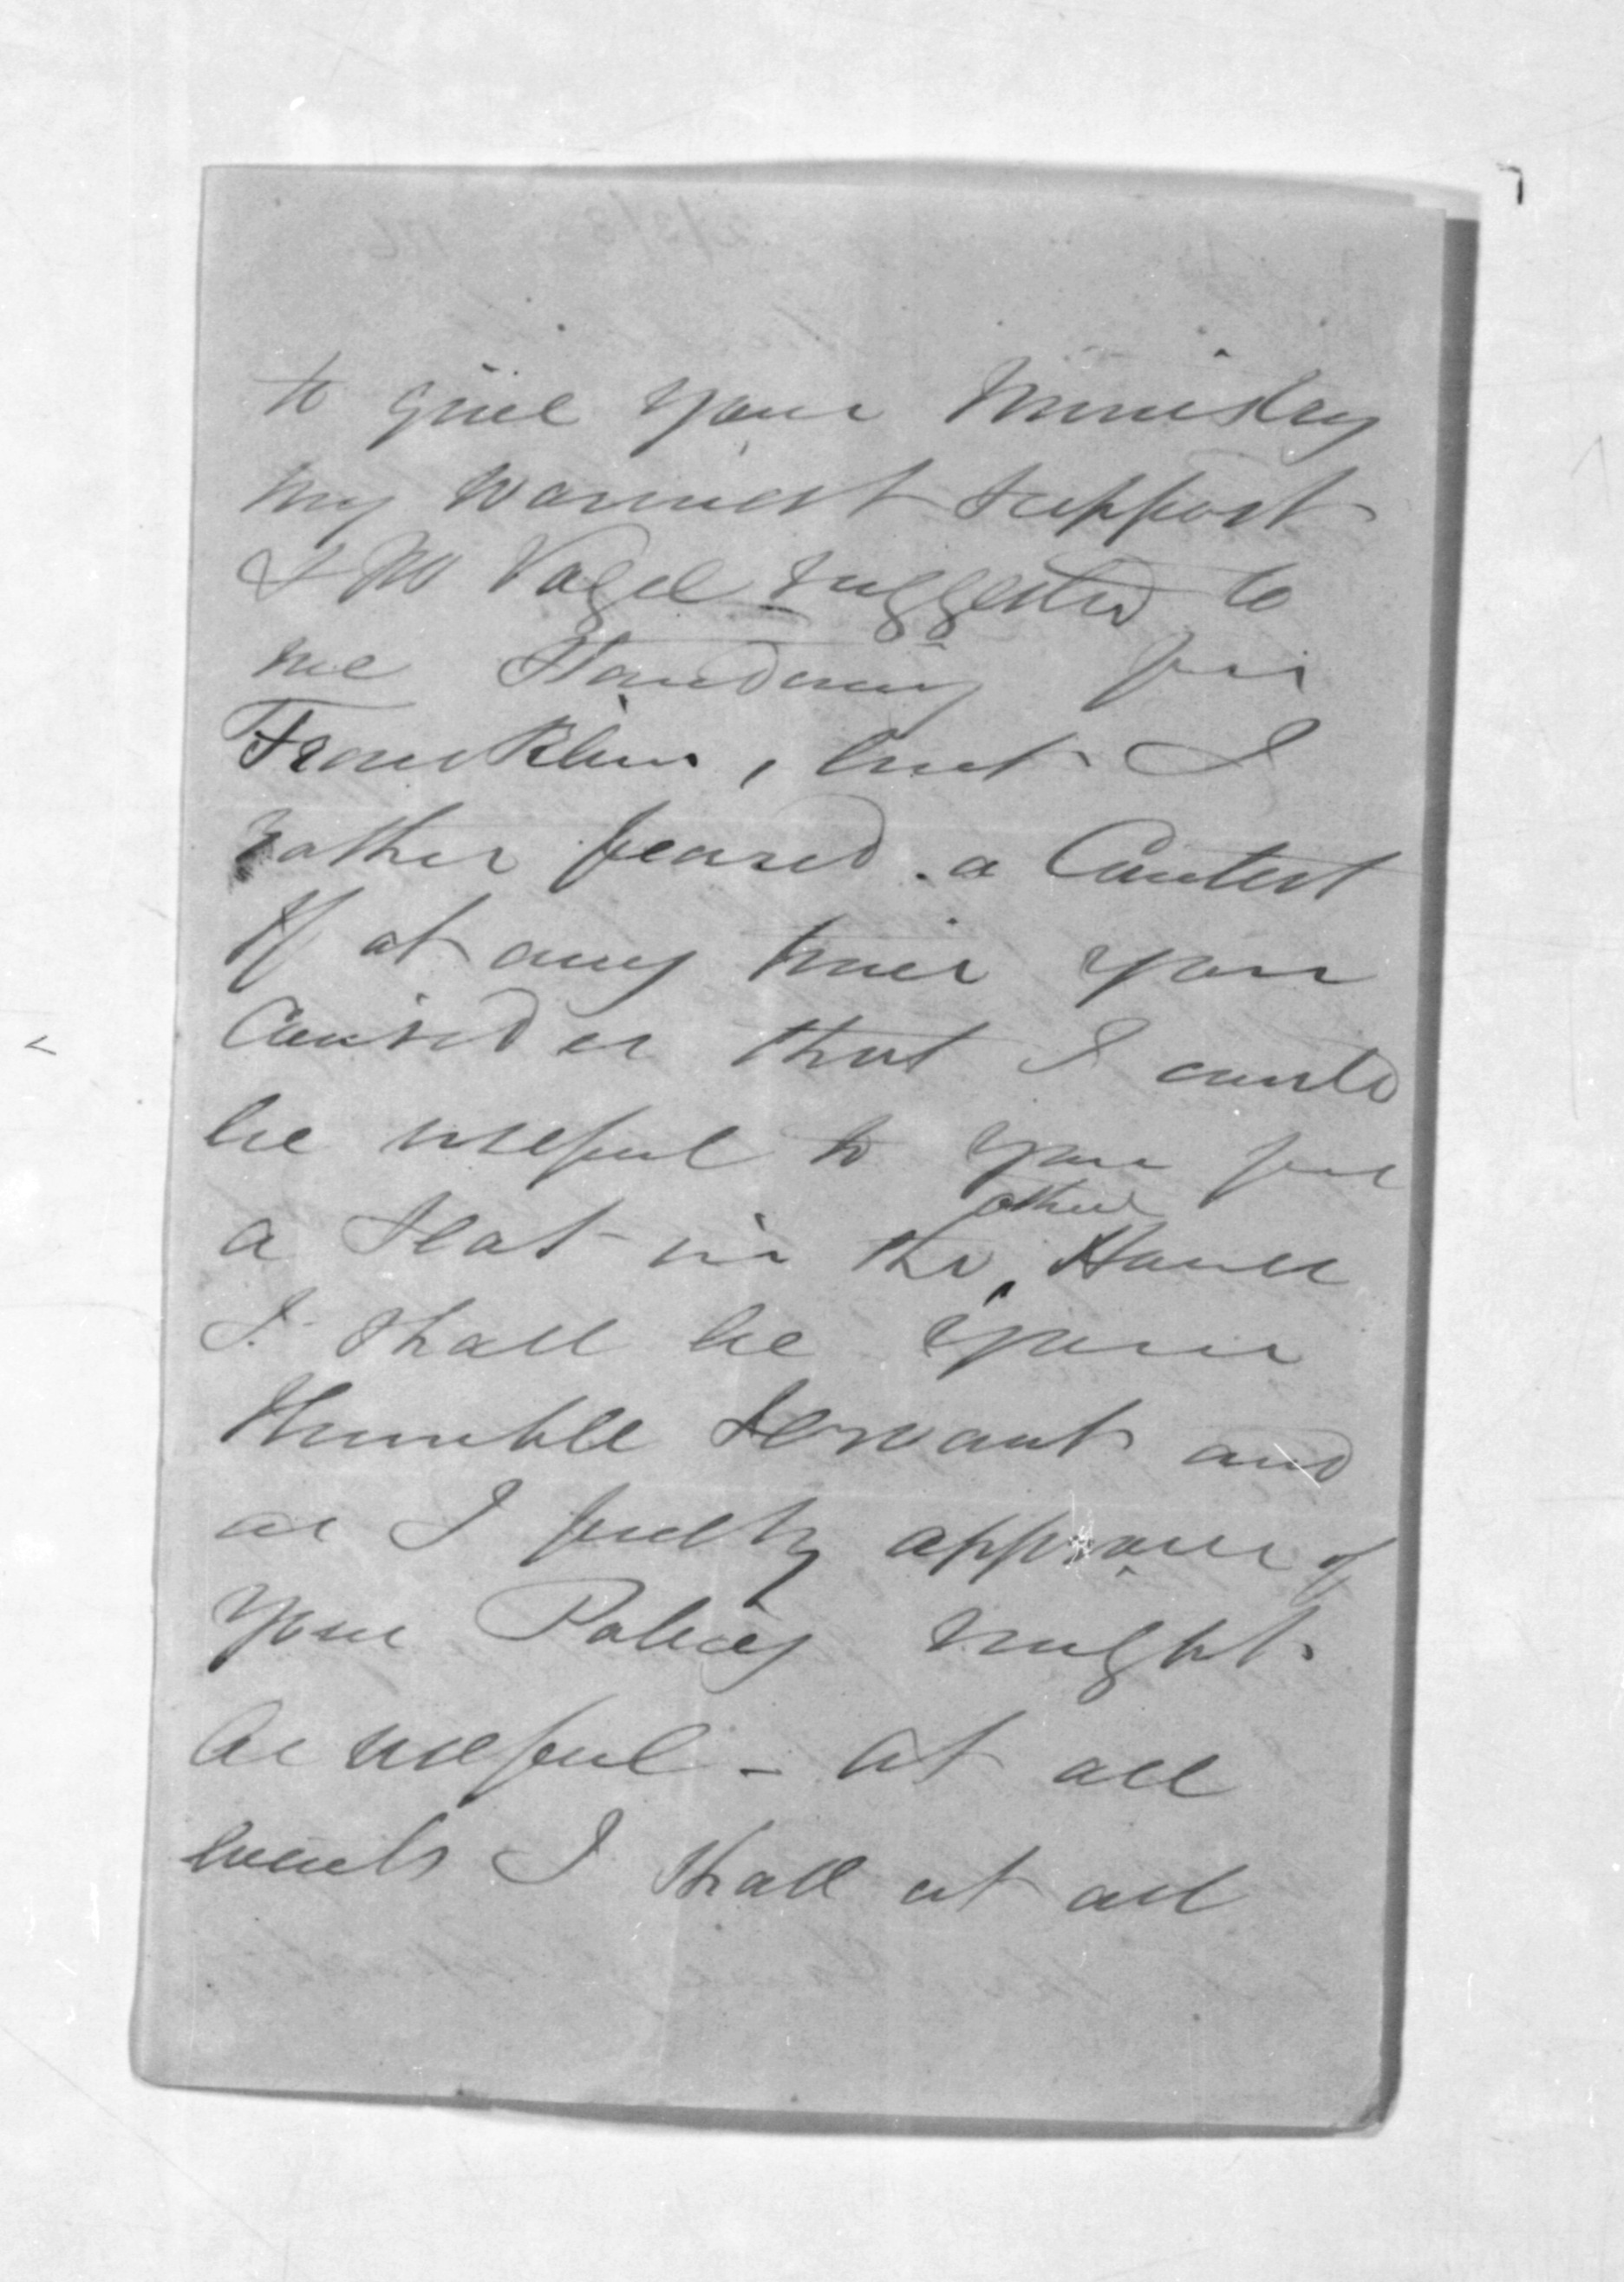 to give your Ministry
my warmest support
& Mr Vogel suggested to
me Standing for
Franklin, but I
rather feared a Contest
If at any time you
Consider that I could
be useful to you for
a Seat in the other House
I shall be your
Humble Servant and
as I fully approve of
your Policy might
be useful - at all
events I shall at all